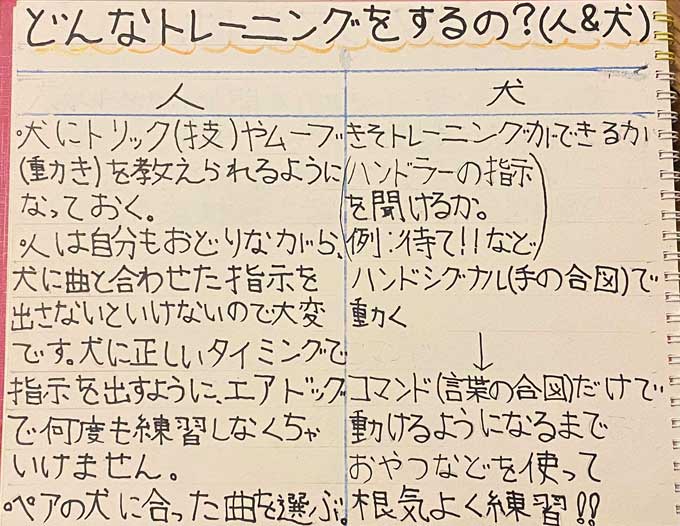 どんなトレーニングをするの?(人&犬)
人
。犬にトリック(技)やムーブ
(動き)を教えられるように
なっておく。
。人は自分もおどりながら、
犬に曲と合わせた指示を
出さないといけないので大変
です。犬に正しいタイミングで
指示を出すように、エアドッグ
で何度も練習しなくちゃ
いけません。
。ペアの犬に合った曲を選ぶ。
犬
きそトレーニングができるか
(ハンドラーの指示
を聞けるか。
例:待て!!など)
ハンドシグナル(手の合図)で
動く
↓
コマンド(言葉の合図)だけで
動けるようになるまで
おやつなどを使って
根気よく練習!!